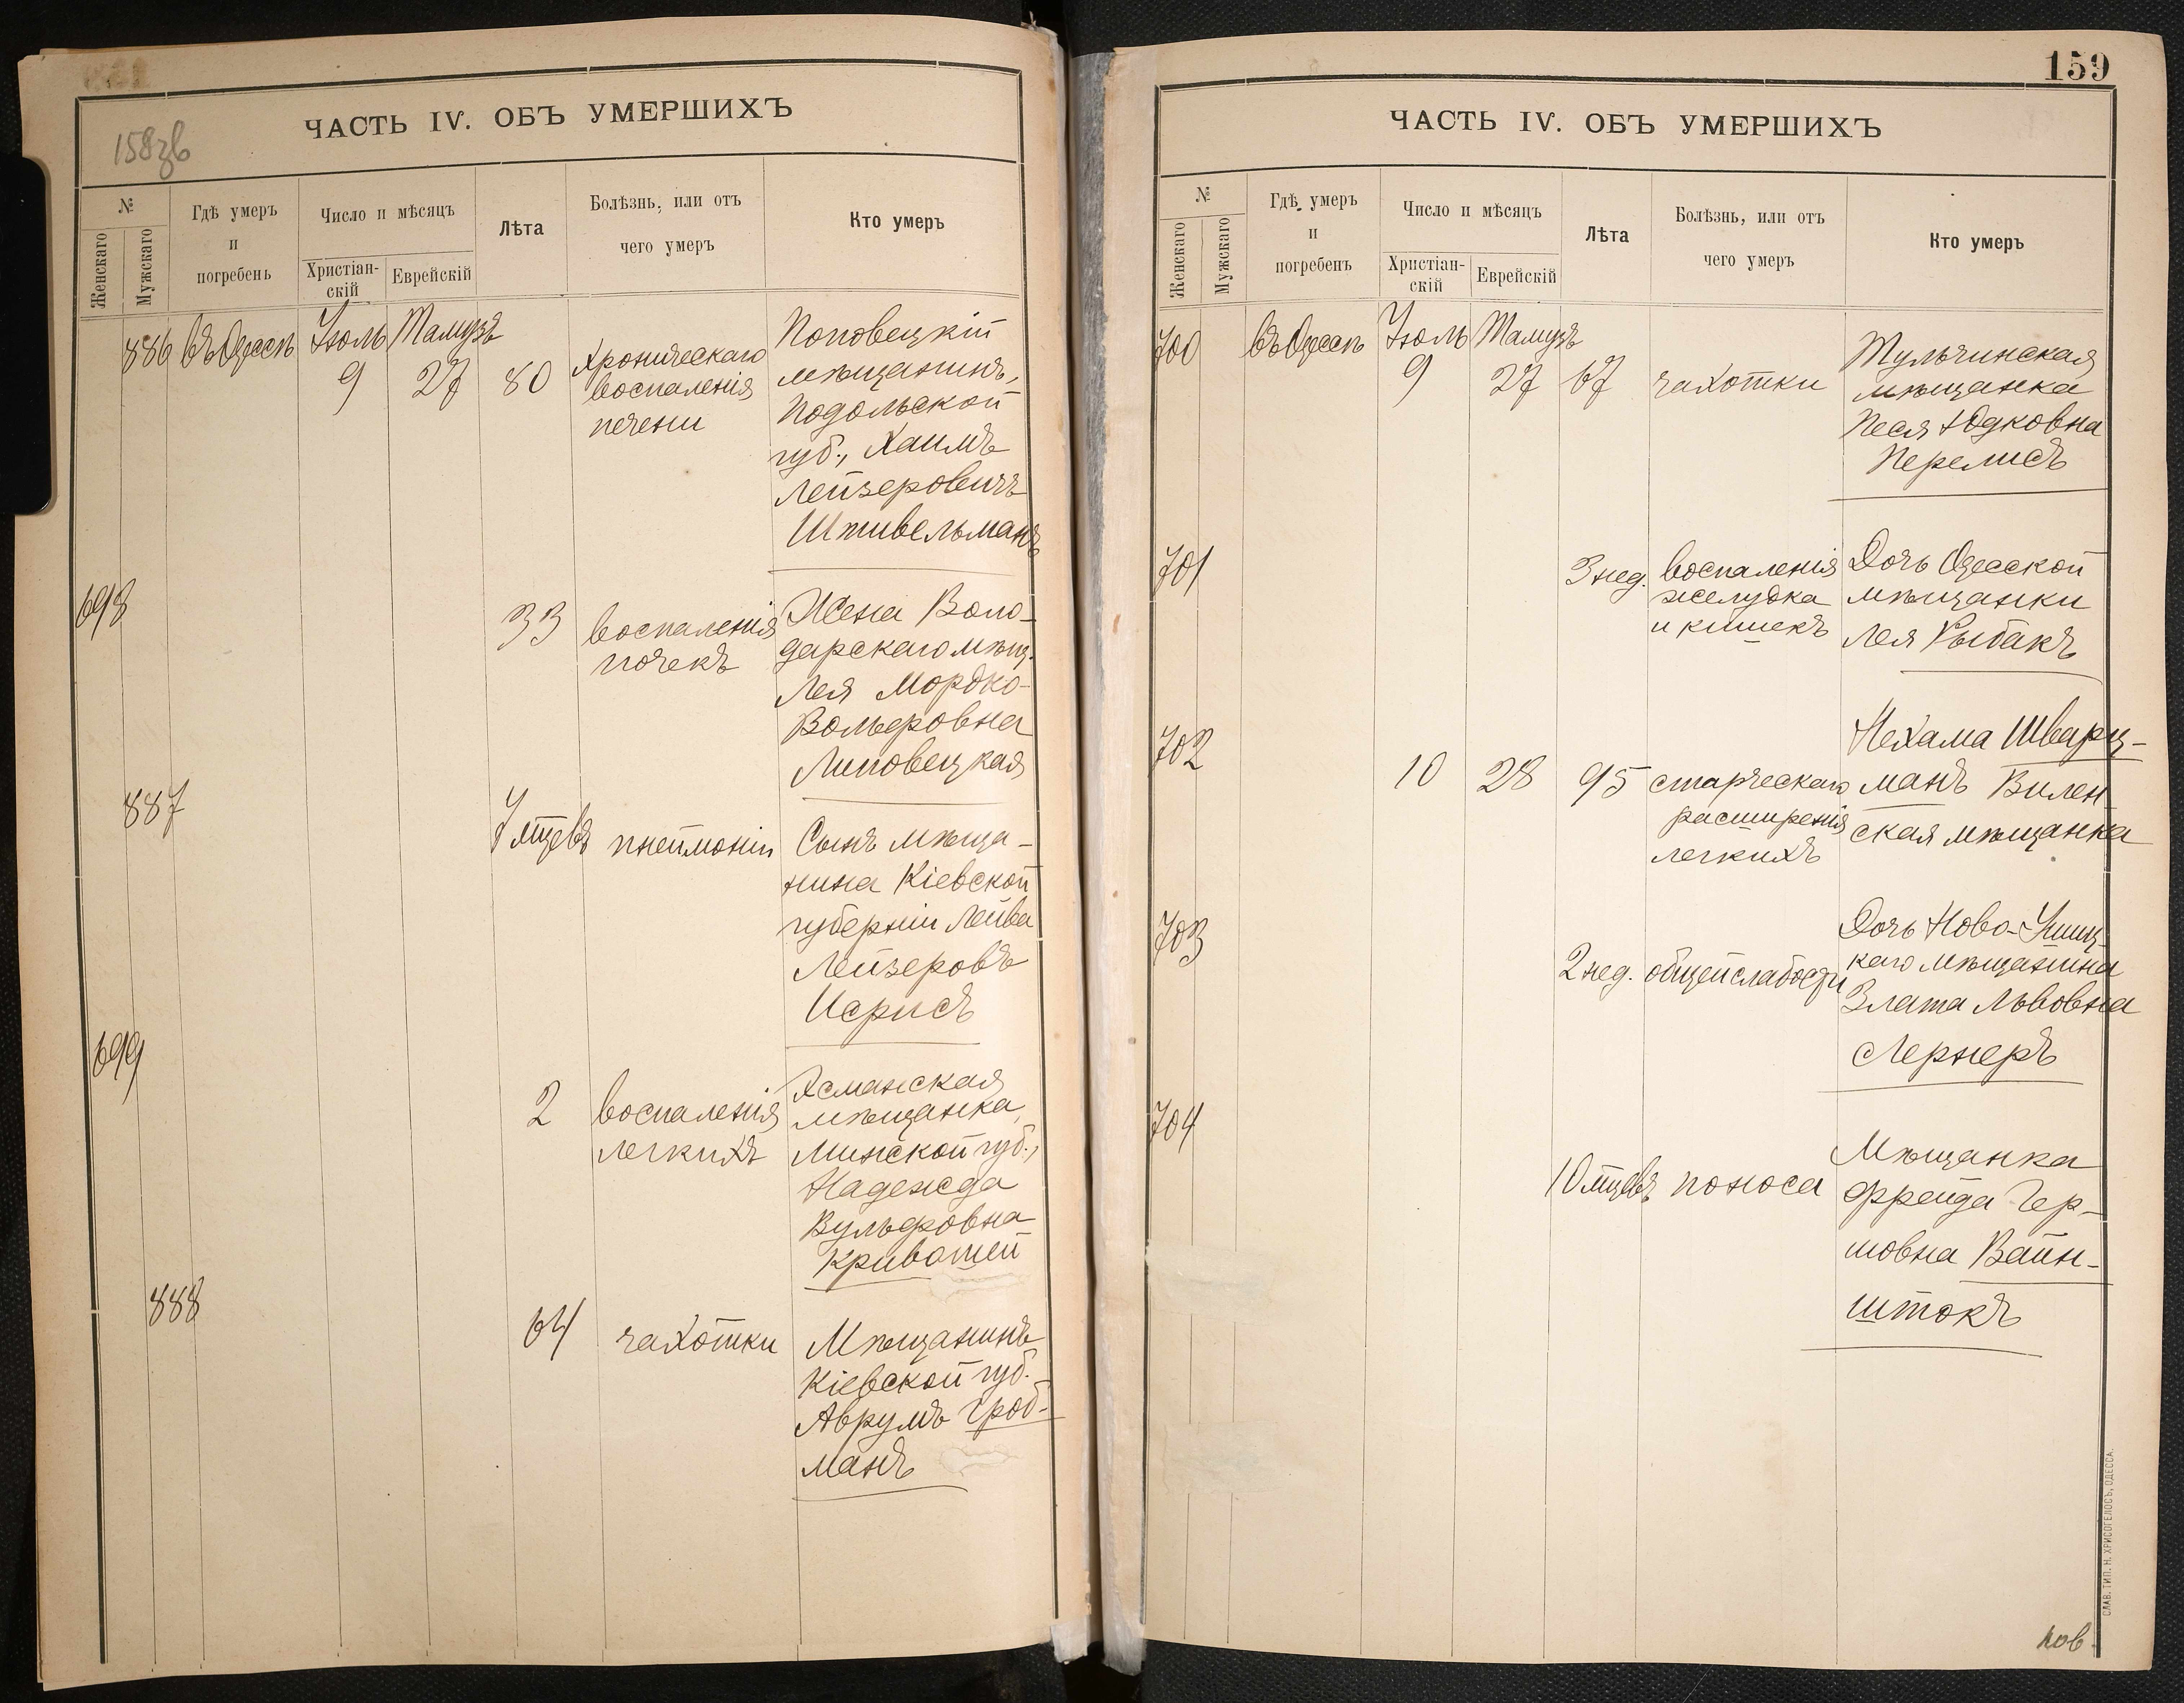 158зв
ЧАСТЬ IV. ОБЪ УМЕРШИХЪ
№
Женскаго
Мужскаго
Гдѣ умеръ
и
погребенъ
Число и мѣсяцъ
Христіан-
скій
Еврейскій
Лѣта
Болѣзнь, или отъ
чего умеръ
Кто умеръ
886 въ Одессѣ Іюль Тамузъ
9 27 80
Хроническаго
воспаленія
печени
Поповецкій
мѣщанинъ,
Подольской
губ., Хаимъ
Лейзеровичъ
Штивельманъ
698
33
воспаленія
почекъ
Жена Воло-
дарскаго мѣщ.
Лея Мордко-
Вольфровна
Липовецкая
887
7 мѣцевъ
пнеймоніи
Сынъ мѣща-
нина Кіевской
губерніи Лейва
Лейзеровъ
699
2
воспаленія
легкихъ
мѣщанка,
Минской губ.,
Надежда
Вульфровна
Кривошей
888
64
чахотки
Мѣщанинъ
Кіевской губ.
Аврумъ Грос-
манъ
159
ЧАСТЬ IV. ОБЪ УМЕРШИХЪ
№
Женскаго
Мужскаго
Гдѣ умеръ
и
погребенъ
Число и мѣсяцъ
Христіан-
скій
Еврейскій
Лѣта
Болѣзнь, или отъ
чего умеръ
Кто умеръ
700 въ Одессѣ Іюль Тамузъ
9 27 67 чахотки
Тульчинская
мѣщанка
Песя Юдковна
Перелисъ
701
3 нед.
воспаленія
желудка
и кишекъ
Дочь Одесской
мѣщанки
Лея Рыбакъ
702
10 28 95
старческаго
расширенія
легкихъ
Нехама Шварц-
манъ Вилен-
ская мѣщанка
703
2 нед. общей слабости
Дочь Ново-Ушиц-
каго мѣщанина
Злата Львовна
Лернеръ
704
10 мѣцевъ поноса
Мѣщанка
Фрейда Гер-
шовна Вайн-
штокъ
СЛАВ. ТИП. Н. ХРИСОГЕЛОСЪ, ОДЕССА.